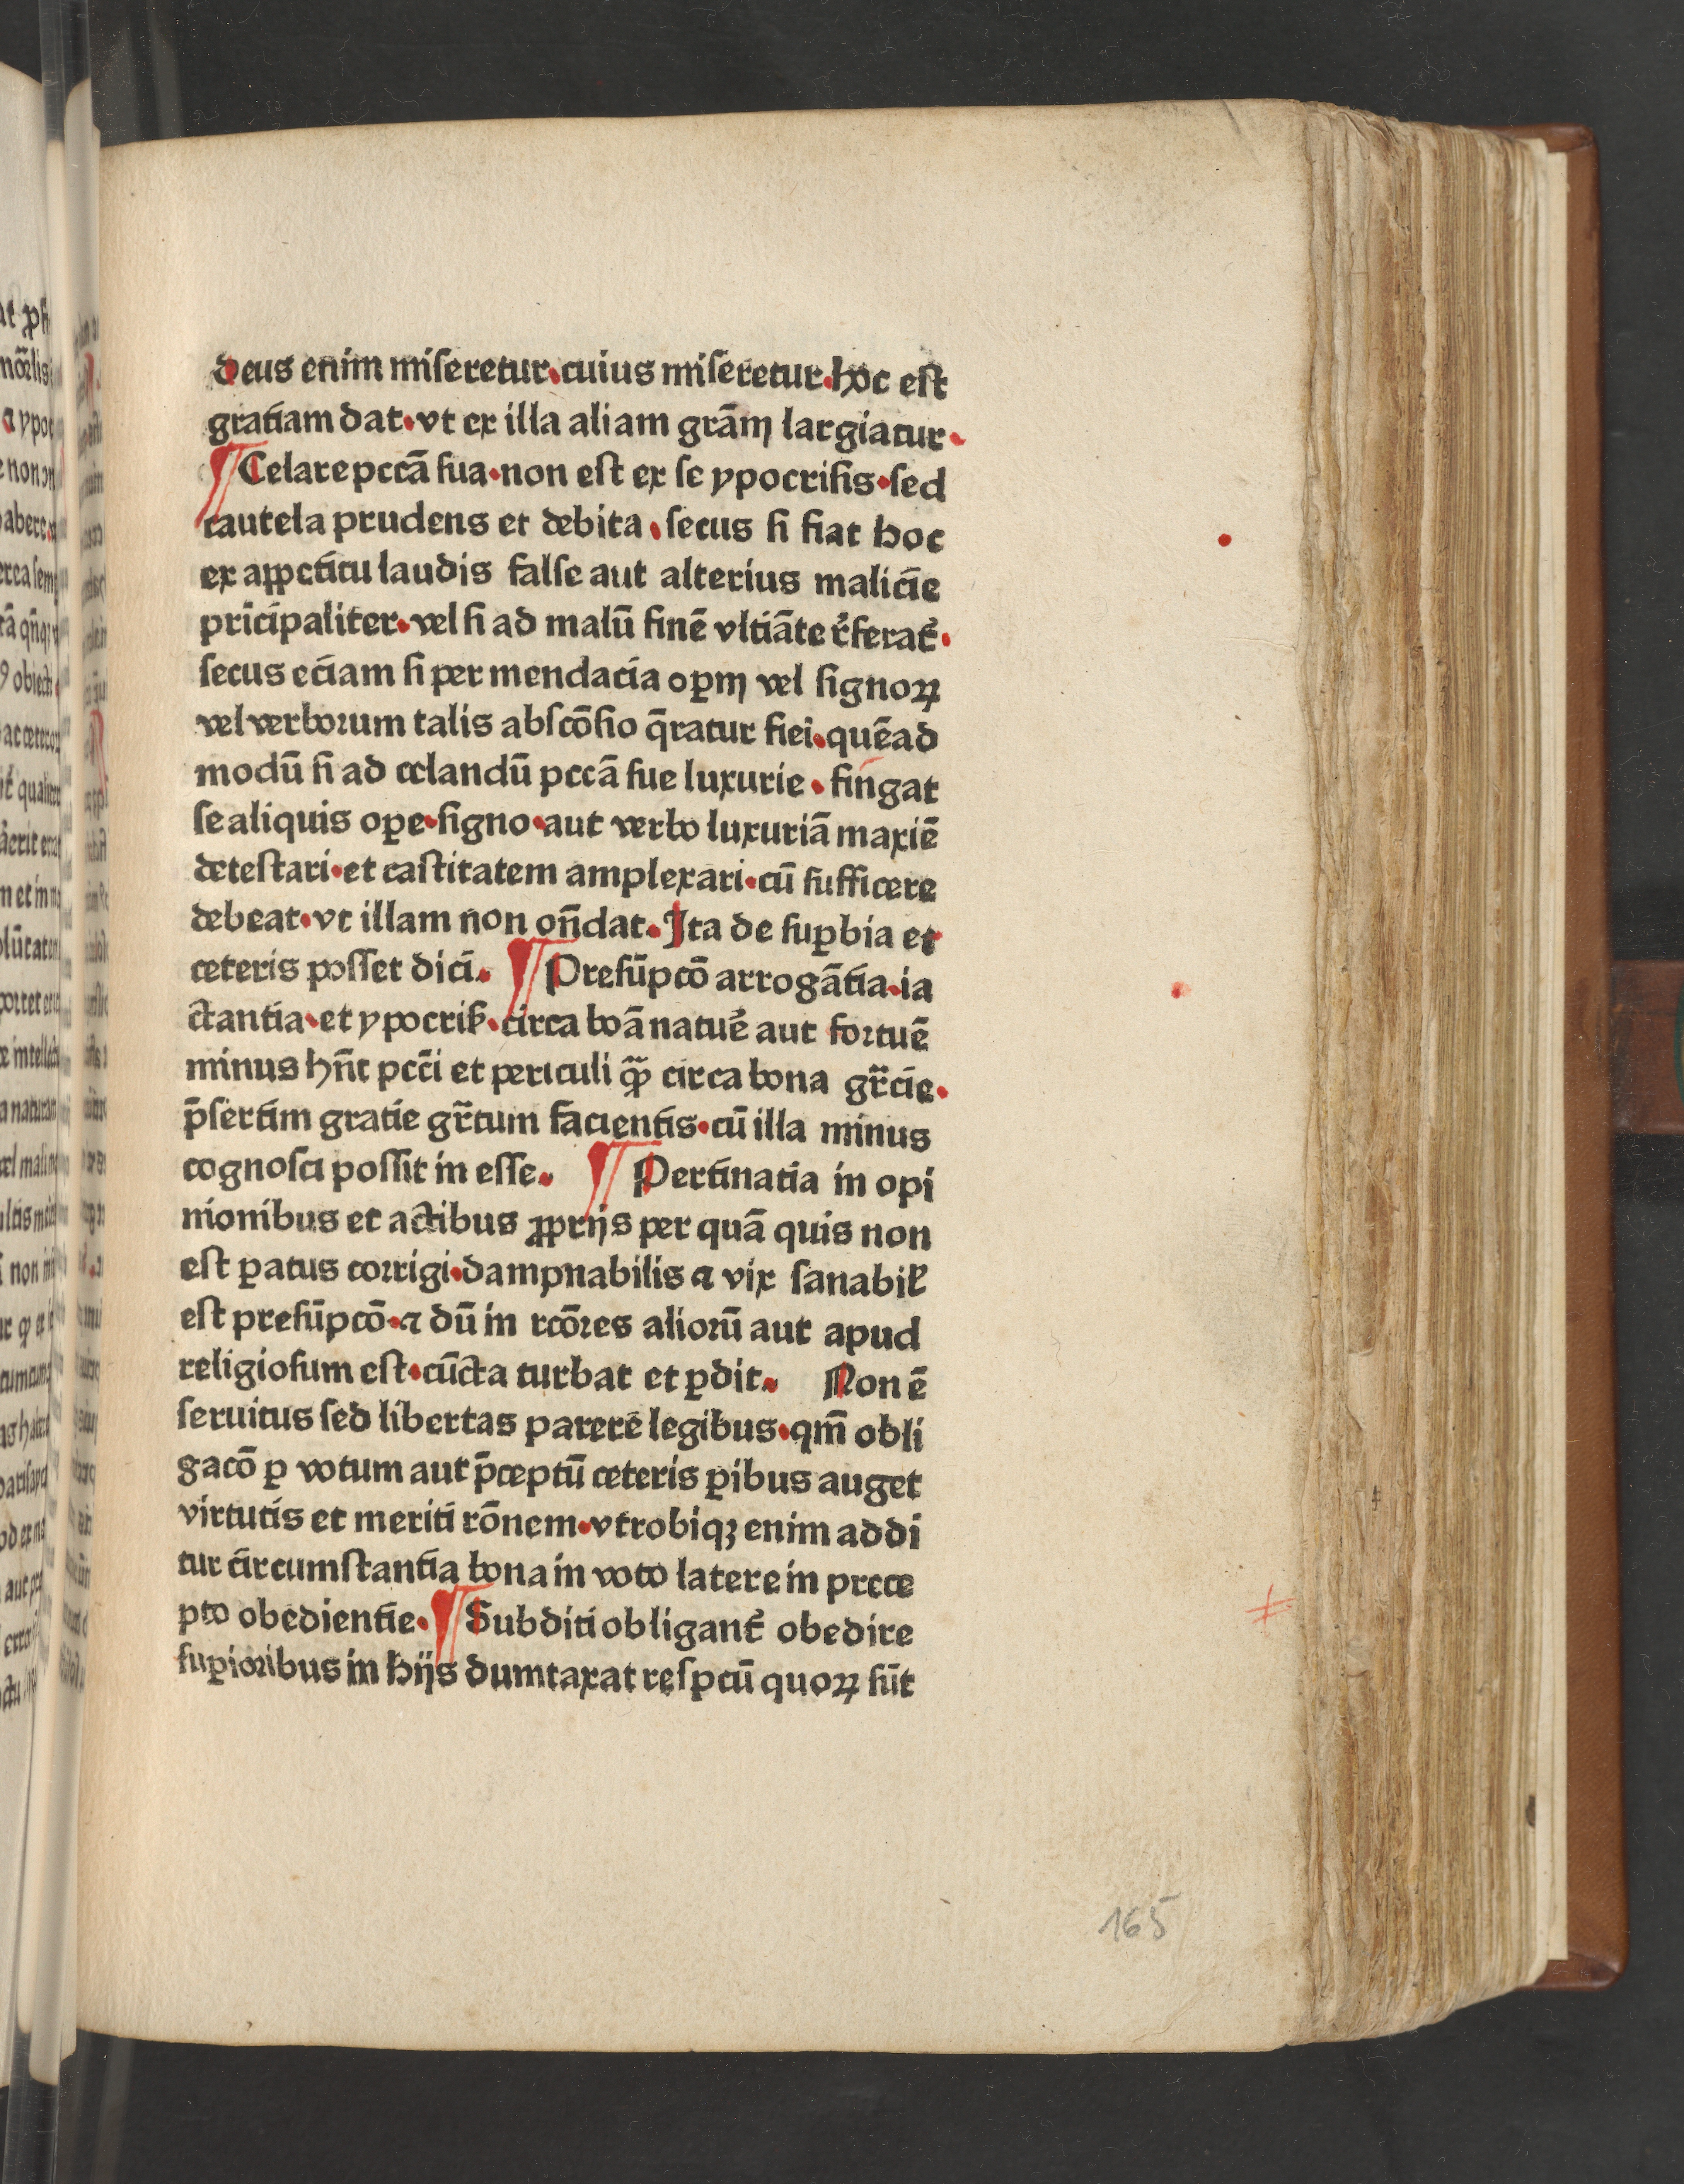 deus enim miſeretur.cuius miſeretur.hoc eſt
gratiam dat.vt ex illa aliam grãm largiatur.
¶Celare pccã ſua.non eſt ex ſe ypocriſis.ſed
cautela prudens et debita.ſecus ſi fiat hoc
ex appetitu laudis falſe aut alterius malicie
prĩcipaliter.vel ſi ad malũ finẽ vltiãte r̃ferat̃.
ſecus eciam ſi per mendacia oꝑm vel ſignoꝝ
vel verborum talis abſcõſio q̃ratur fiei.quẽad
modũ ſi ad celandũ pccã ſue luxurie.fingat
ſe aliquis oꝑe.ſigno.aut verbo luxuriã maxiẽ
deteſtari.et caſtitatem amplexari.cũ ſufficere
debeat.vt illam non on̄dat.Ita de ſuꝑbia et
ceteris poſſet dici. ¶Preſũpcõ arrogãtia.ia
ctantia.et ypocriſ̃.circa boã natuẽ aut fortuẽ
minus hñt pcc̃i et periculi ꝙ̃ circa bona gr̃cie.
p̃ſertim gratie gr̃tum facientis.cũ illa minus
cognoſci poſſit in eſſe. ¶Pertinatia in opi
nionibus et actibus ꝓprijs per quã quis non
eſt ꝑatus corrigi.dampnabilis ⁊ vix ſanabiƚ
eſt preſũpcõ.⁊ dũ in rcõres aliorũ aut apud
religioſum eſt.cũcta turbat et ꝑdit. Non ẽ
ſeruitus ſed libertas parere legibus.qm̃ obli
gacõ ꝑ votum aut p̃ceptũ ceteris ꝑibus auget
virtutis et meriti rõnem.vtrobiqꝫ enim addi
tur circumſtantia bona in voto latere in prece
pto obedientie.¶Subditi obligant̃ obedire
ſuꝑioribus in hijs dumtaxat reſpcũ quoꝝ ſũt
165